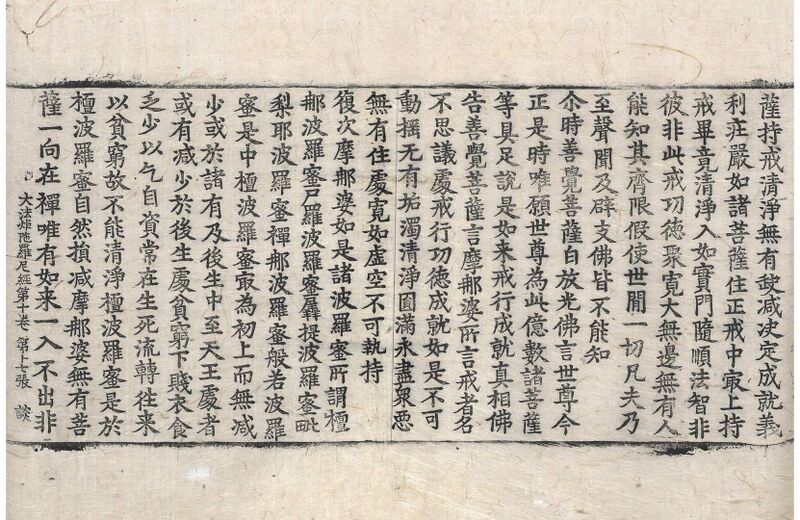 薩持戒清淨無有𡙇減决定成就義
利莊嚴如諸菩薩住正戒中㝡上持
戒畢竟清淨入如實門隨順法智非
彼非此戒功德聚寬大無邊無有人
能知其齊限假使世閒一切凡夫乃
至聲聞及辟支佛皆不能知
尒時善覺菩薩白放光佛言世尊今
正是時唯願世尊為此億數諸菩薩
等具足說是如来戒行成就真相佛
告善覺菩薩言摩那婆所言戒者名
不思議處戒行功德成就如是不可
動揺无有垢濁清淨圓滿永盡衆惡
無有住處寬如虛空不可執持
復次摩那婆如是諸波羅蜜所謂檀
那波羅蜜尸羅波羅蜜羼提波羅蜜毗
梨耶波羅蜜禪那波羅蜜般若波羅
蜜是中檀波羅蜜㝡為初上而無減
少或於諸有及後生中至天王處者
或有減少於後生處貧窮下賤衣食
乏少以乞自資常在生死流轉往来
以貧窮故不能清淨檀波羅蜜是於
檀波羅蜜自然損減摩那婆無有菩
薩一向在禪唯有如来一入不出非
大法炬陁羅尼經第十卷 第十七張 談